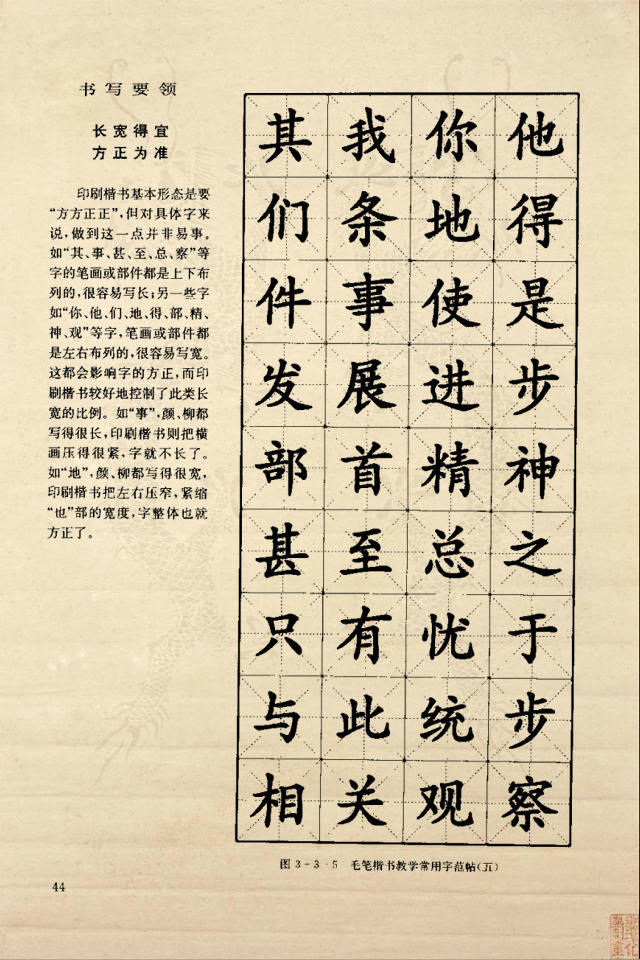 书写要领
长宽得宜
方正为准
印刷楷书基本形态是要
“方方正正”,但对具体字来
说,做到这一点并非易事。
如“其、事、甚、至、总、察”等
字的笔画或部件都是上下布
列的,很容易写长;另一些字
如“你、他、们、地、得、部、精、
神、观”等字,笔画或部件都
是左右布列的,很容易写宽。
这都会影响字的方正,而印
刷楷书较好地控制了此类长
宽的比例。如“事”,颜、柳都
写得很长,印刷楷书则把横
画压得很紧,字就不长了。
如“地”,颜、柳都写得很宽,
印刷楷书把左右压窄,紧缩
“也”部的宽度,字整体也就
方正了。
其我你他
们条地得
件事使是
发展进步
部首精神
甚至总之
只有忧于
与此统步
相关观察
图3-3-5 毛笔楷书教学常用字范帖(五)
44